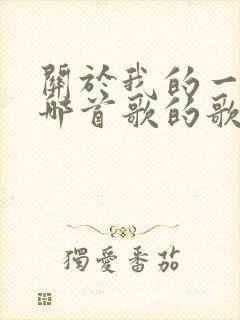 關於我的一
哪首歌的歌
獨愛番茄